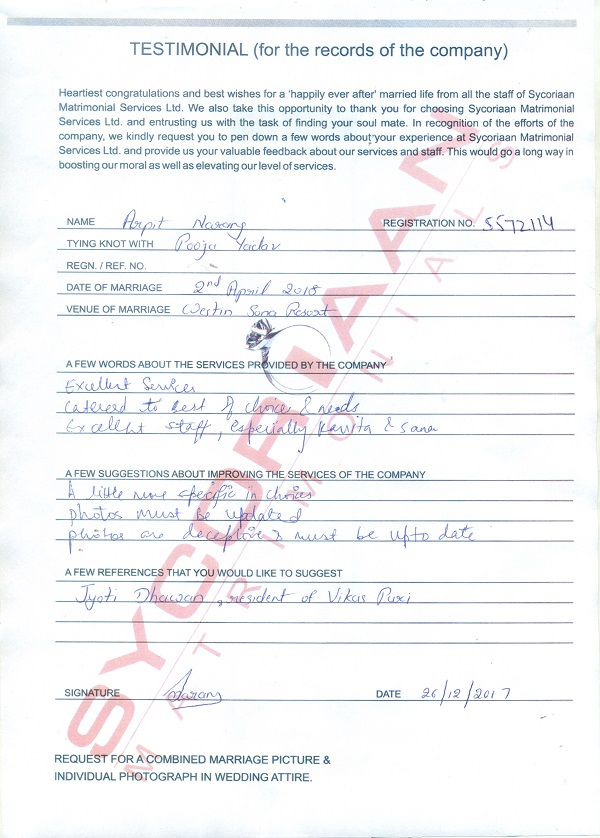 TESTIMONIAL (for the records of the company)
Heartiest congratulations and best wishes for a 'happily ever after' married life from all the staff of Sycoriaan
Matrimonial Services Ltd. We also take this opportunity to thank you for choosing Sycoriaan Matrimonial
Services Ltd. and entrusting us with the task of finding your soul mate. In recognition of the efforts of the
company, we kindly request you to pen down a few words about your experience at Sycoriaan Matrimonial
Services Ltd. and provide us your valuable feedback about our services and staff. This would go a long way in
boosting our moral as well as elevating our level of services.
NAME Arpit Narang REGISTRATION NO. 5572114
TYING KNOT WITH Pooja Yadav
REGN. / REF. NO.
DATE OF MARRIAGE 2nd April 2018
VENUE OF MARRIAGE Westin Sona Resort
A FEW WORDS ABOUT THE SERVICES PROVIDED BY THE COMPANY
Excellent Services
Catered to best of choices & needs
Excellent staff, especially Kavita & Sana
A FEW SUGGESTIONS ABOUT IMPROVING THE SERVICES OF THE COMPANY
A little more specific in choices
Photos must be updated
photos are deceptive & must be upto date
A FEW REFERENCES THAT YOU WOULD LIKE TO SUGGEST
Jyoti Dhawan, resident of Vikas Puri
SIGNATURE Narang DATE 26/12/2017
REQUEST FOR A COMBINED MARRIAGE PICTURE &
INDIVIDUAL PHOTOGRAPH IN WEDDING ATTIRE.
SYCORIAAN
MATRIMONIALS